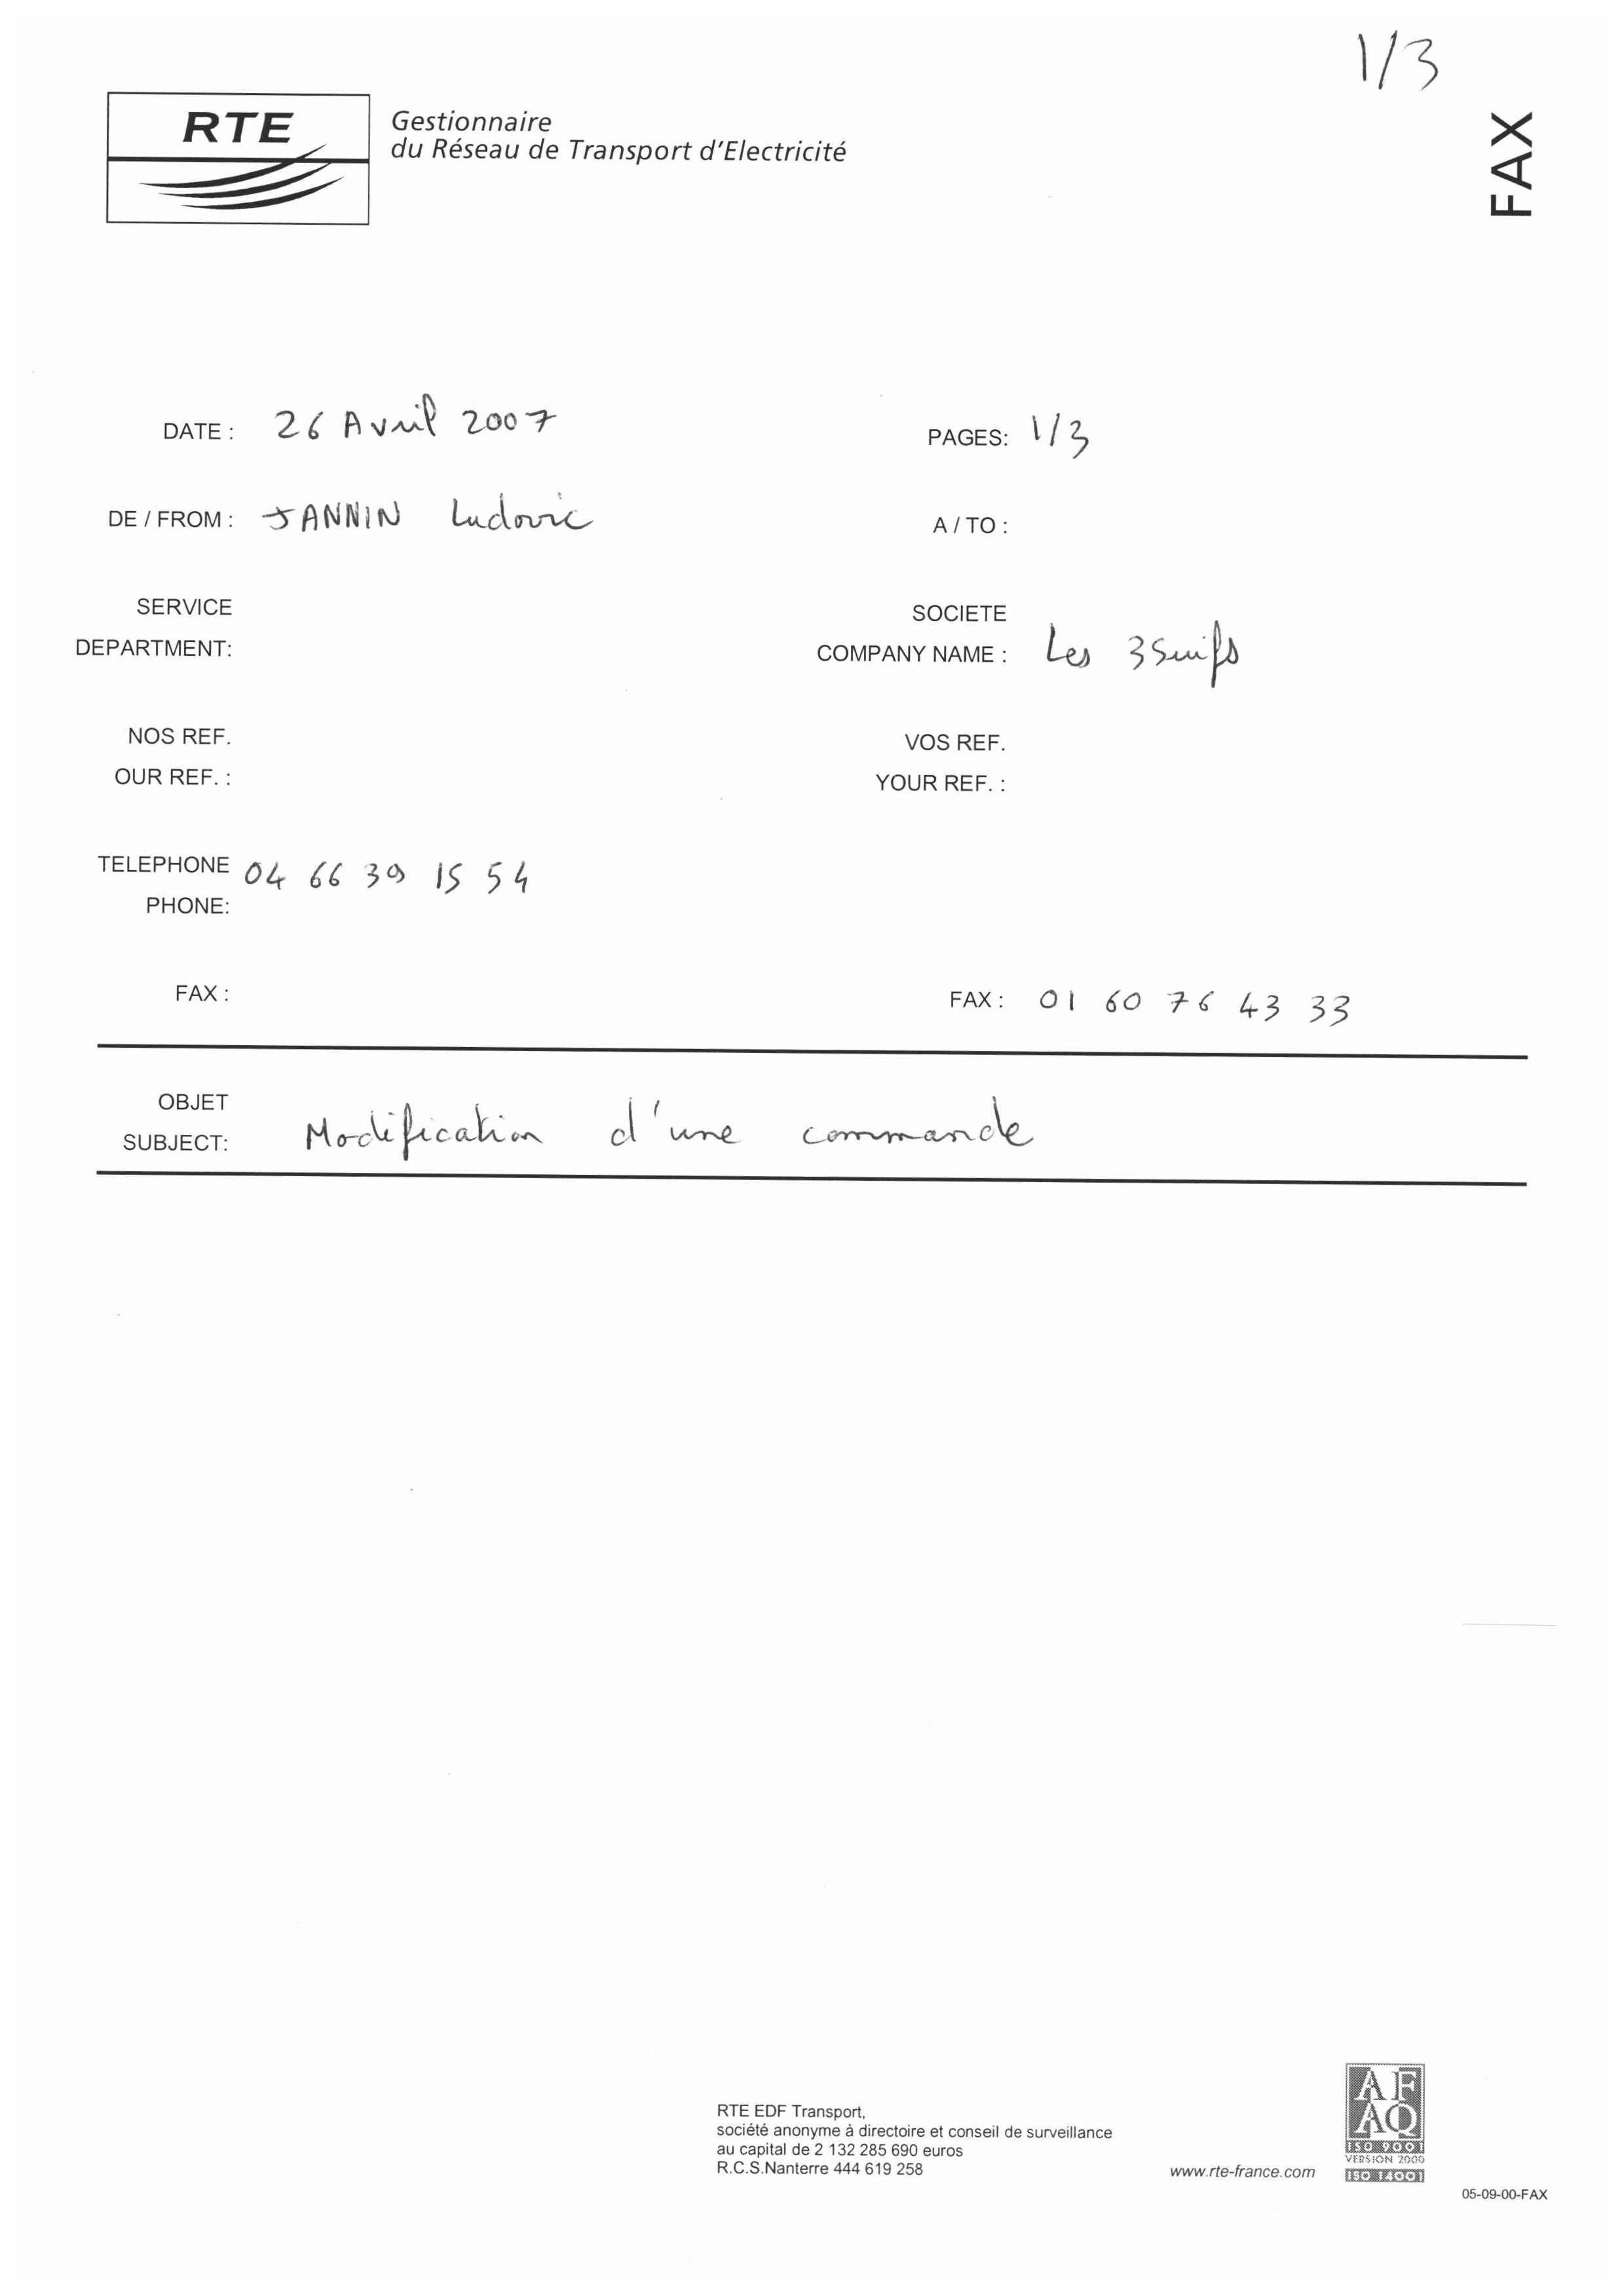 1/3
RTE
Gestionnaire
du Réseau de Transport d'Electricité
FAX
DATE : 26 Avril 2007
PAGES: 1/3
DE / FROM : JANNIN Ludovic
A / TO :
SERVICE
DEPARTMENT:
SOCIETE
COMPANY NAME : Les 3 Suifs
NOS REF.
OUR REF. :
VOS REF.
YOUR REF. :
TELEPHONE 04 66 39 15 54
PHONE:
FAX :
FAX : 01 60 76 43 33
OBJET
SUBJECT: Modification d'une commande
RTE EDF Transport,
société anonyme à directoire et conseil de surveillance
au capital de 2 132 285 690 euros
R.C.S.Nanterre 444 619 258
www.rte-france.com
AF
AQ
ISO 9001
VERSION 2000
ISO 14001
05-09-00-FAX